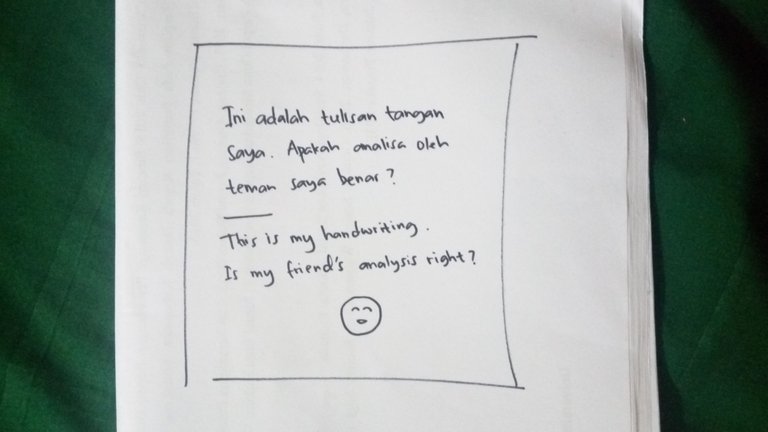 Ini adalah tulisan tangan
saya. Apakah analisa oleh
teman saya benar?
This is my handwriting.
Is my friend's analysis right?